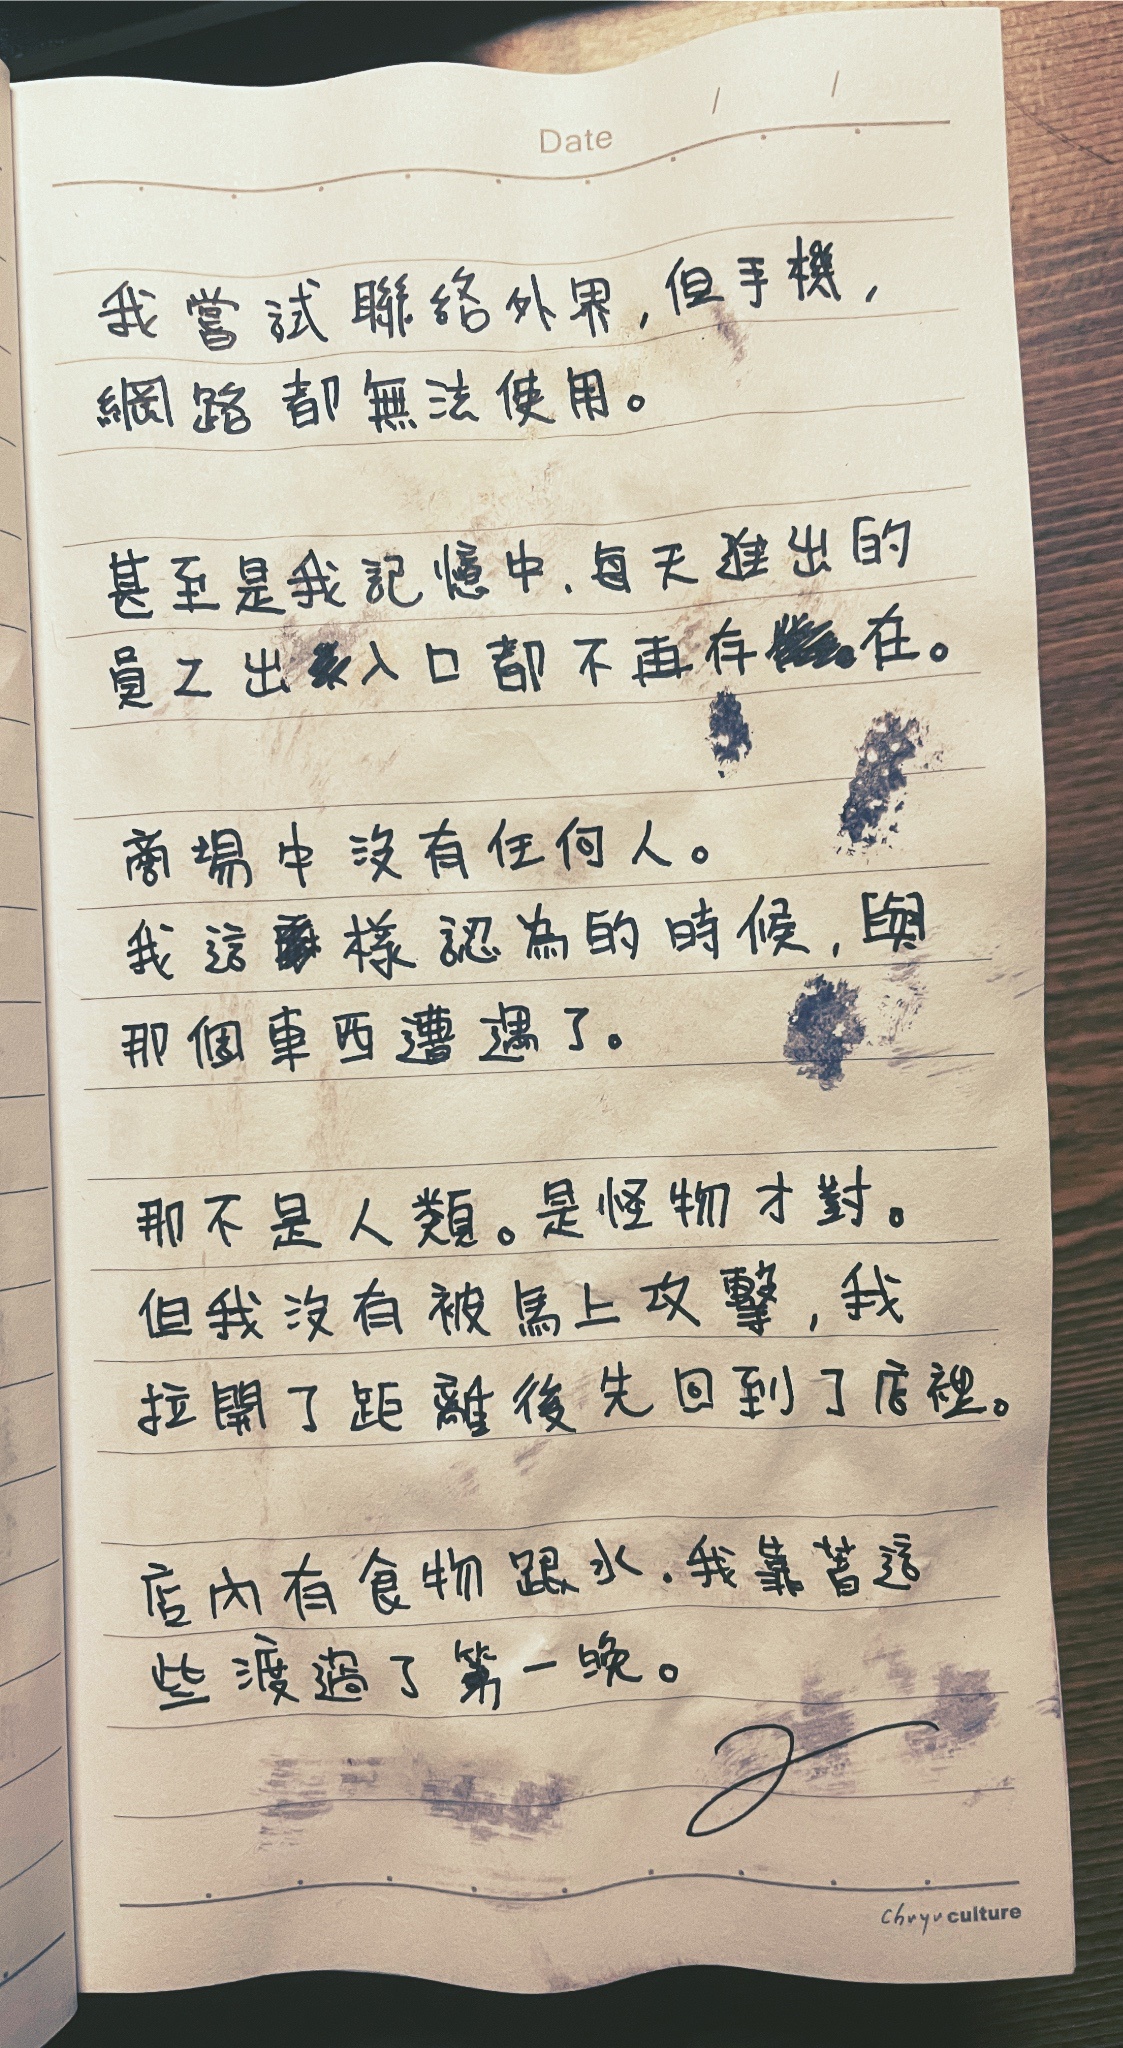 Date / /
我嘗試聯絡外界,但手機,
網路都無法使用。
甚至是我記憶中,每天進出的
員工出入口都不再存在。
商場中沒有任何人。
我這樣認為的時候,與
那個東西遭遇了。
那不是人類。是怪物才對。
但我沒有被馬上攻擊,我
拉開了距離後先回到了店裡。
店內有食物跟水,我靠著這
些渡過了第一晚。
chuyu culture